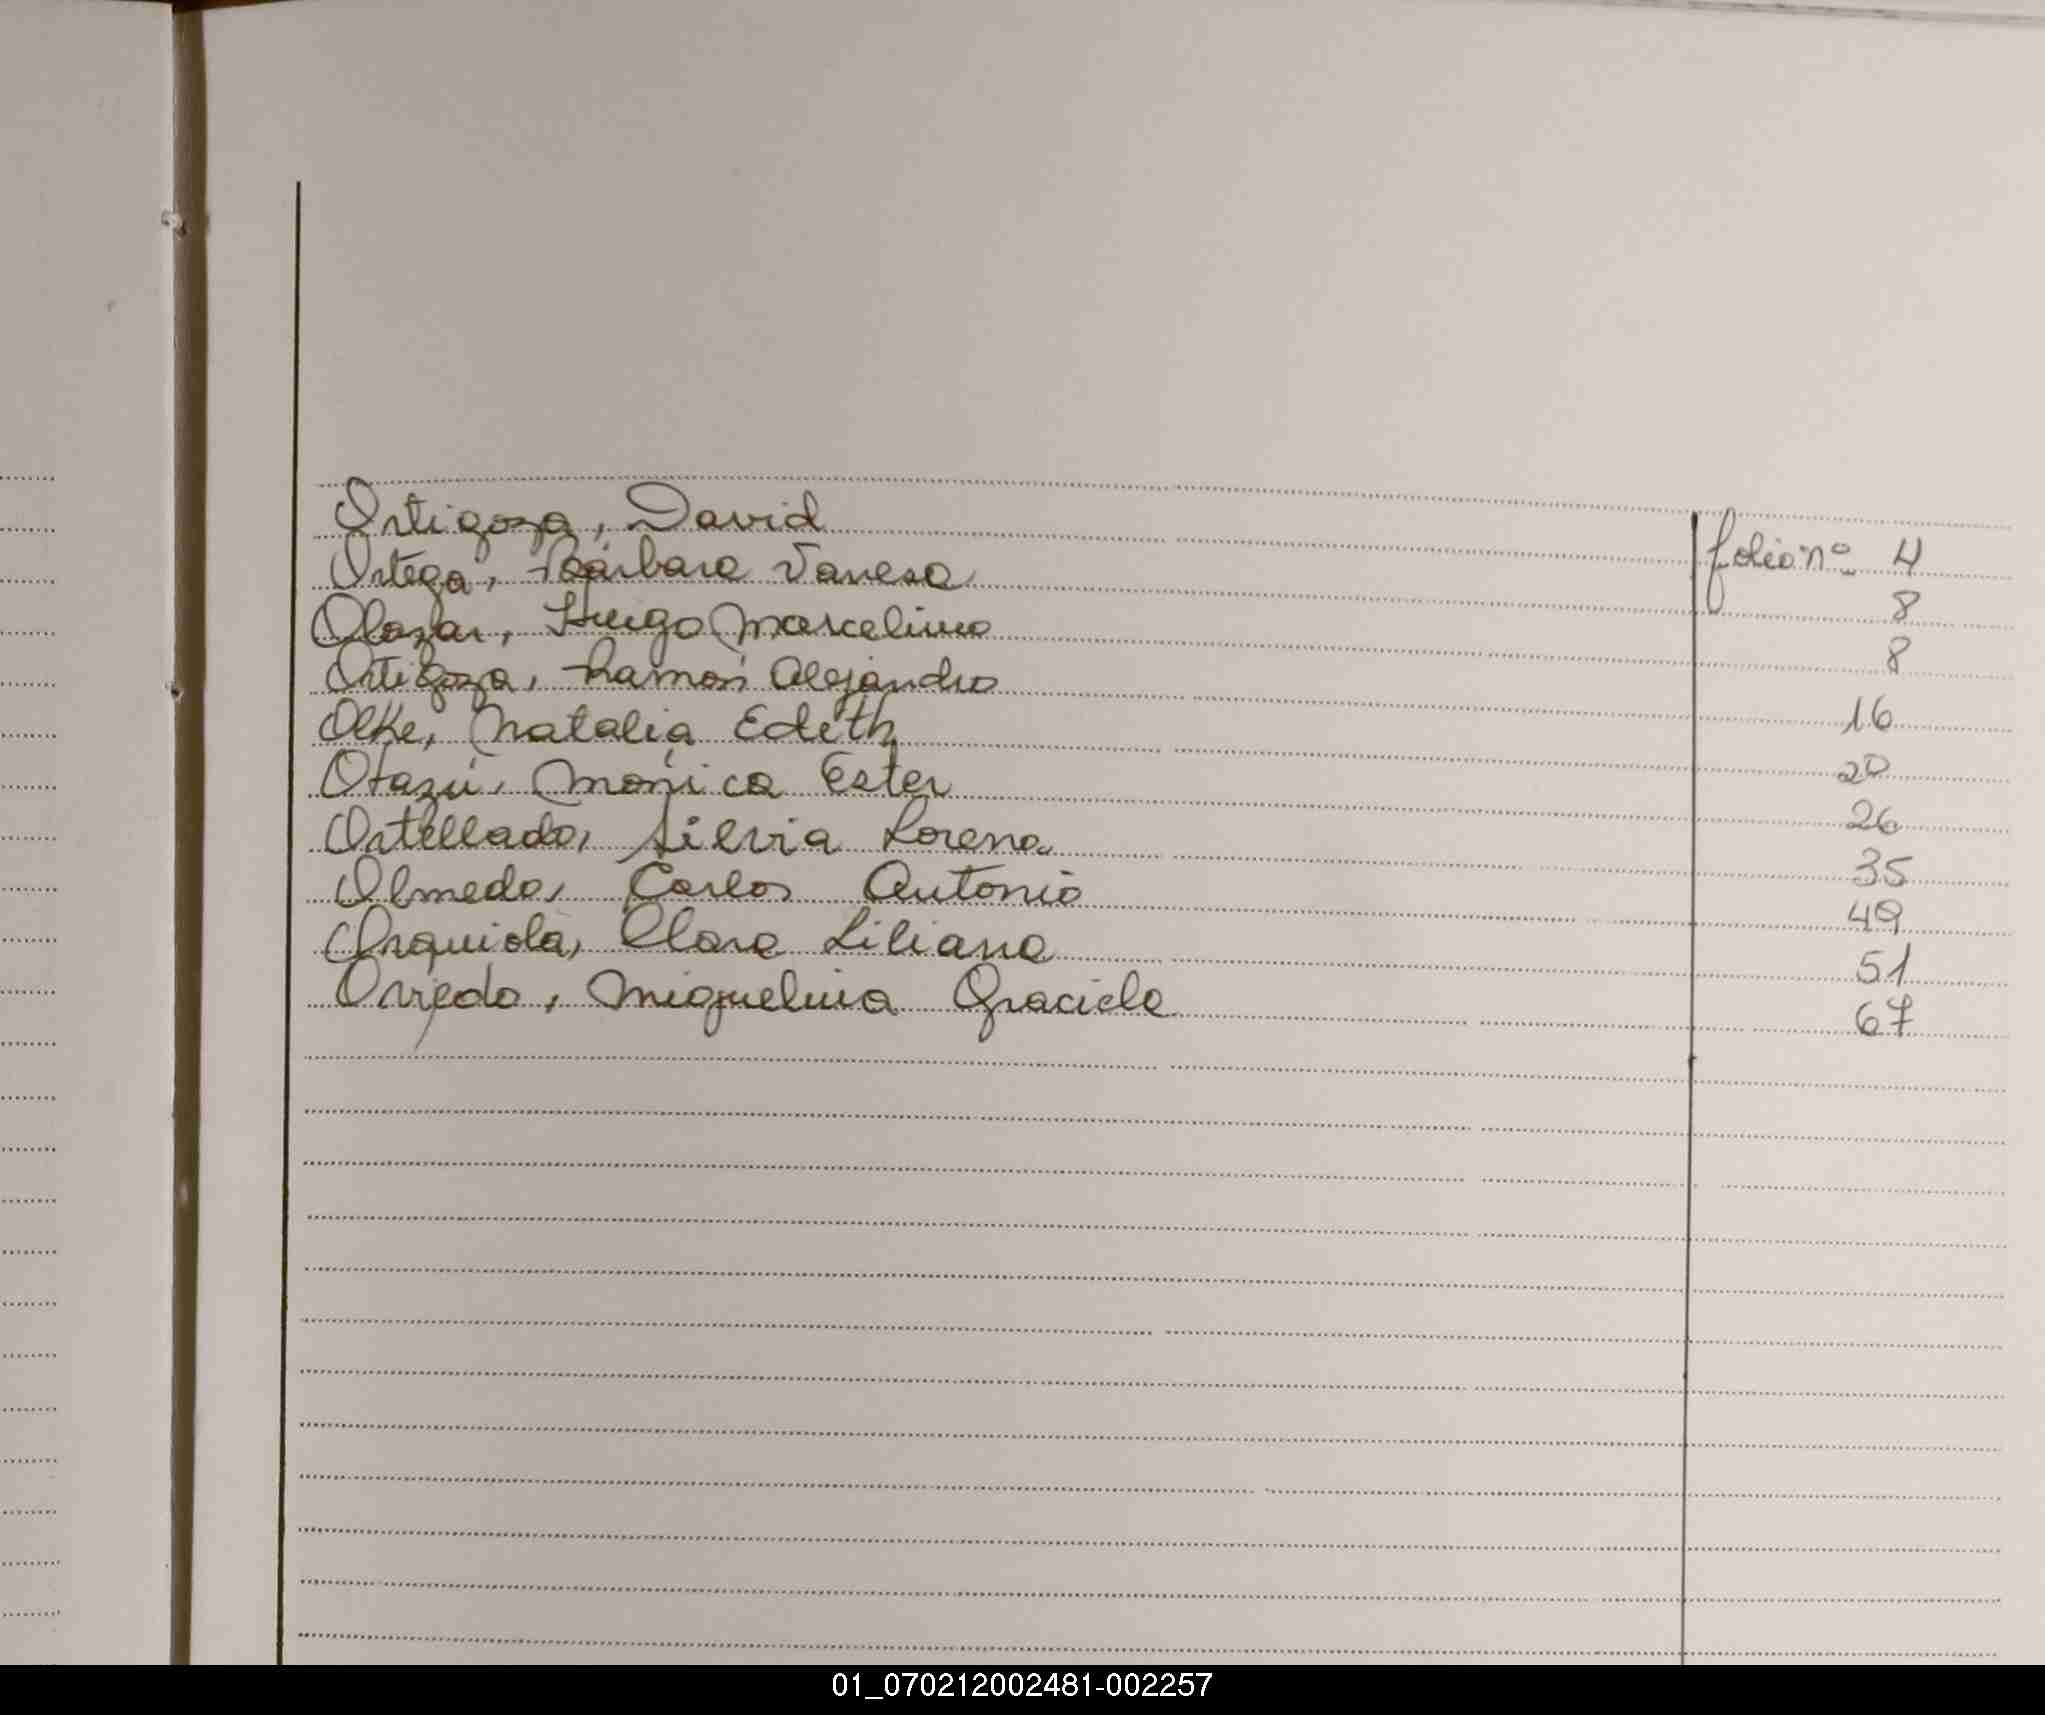 Ortigoza, David folio nº 4
Ortega, Bárbara Vanesa 8
Olazar, Hugo Marcelino 8
Ortigoza, Ramón Alejandro 16
Olke, Natalia Edith 20
Otazú, Mónica Ester 26
Ortellado, Silvia Lorena 35
Olmedo, Carlos Antonio 49
Orquiola, Clara Liliana 51
Oviedo, Miguelina Graciela 67
01_070212002481-002257